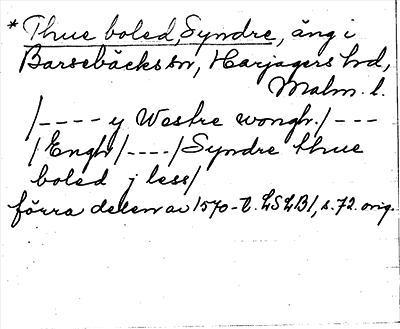 * Thue boled, Syndre, äng i
Barsebäcks sn, Harjagers hd,
Malm. l.
/---- y Westre wongh./---
/Engh/----/Syndre thue
boled j less/
förra delen av 1570-t. LSLB1, s. 72. orig.